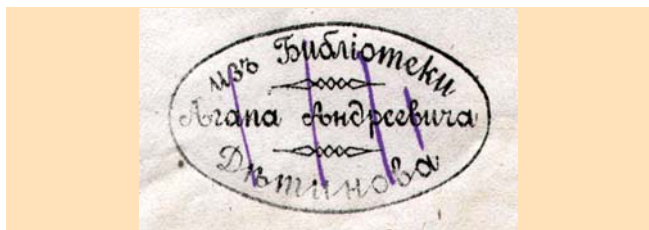 изъ Библіотеки
Агапа Андреевича
Дѣтинова